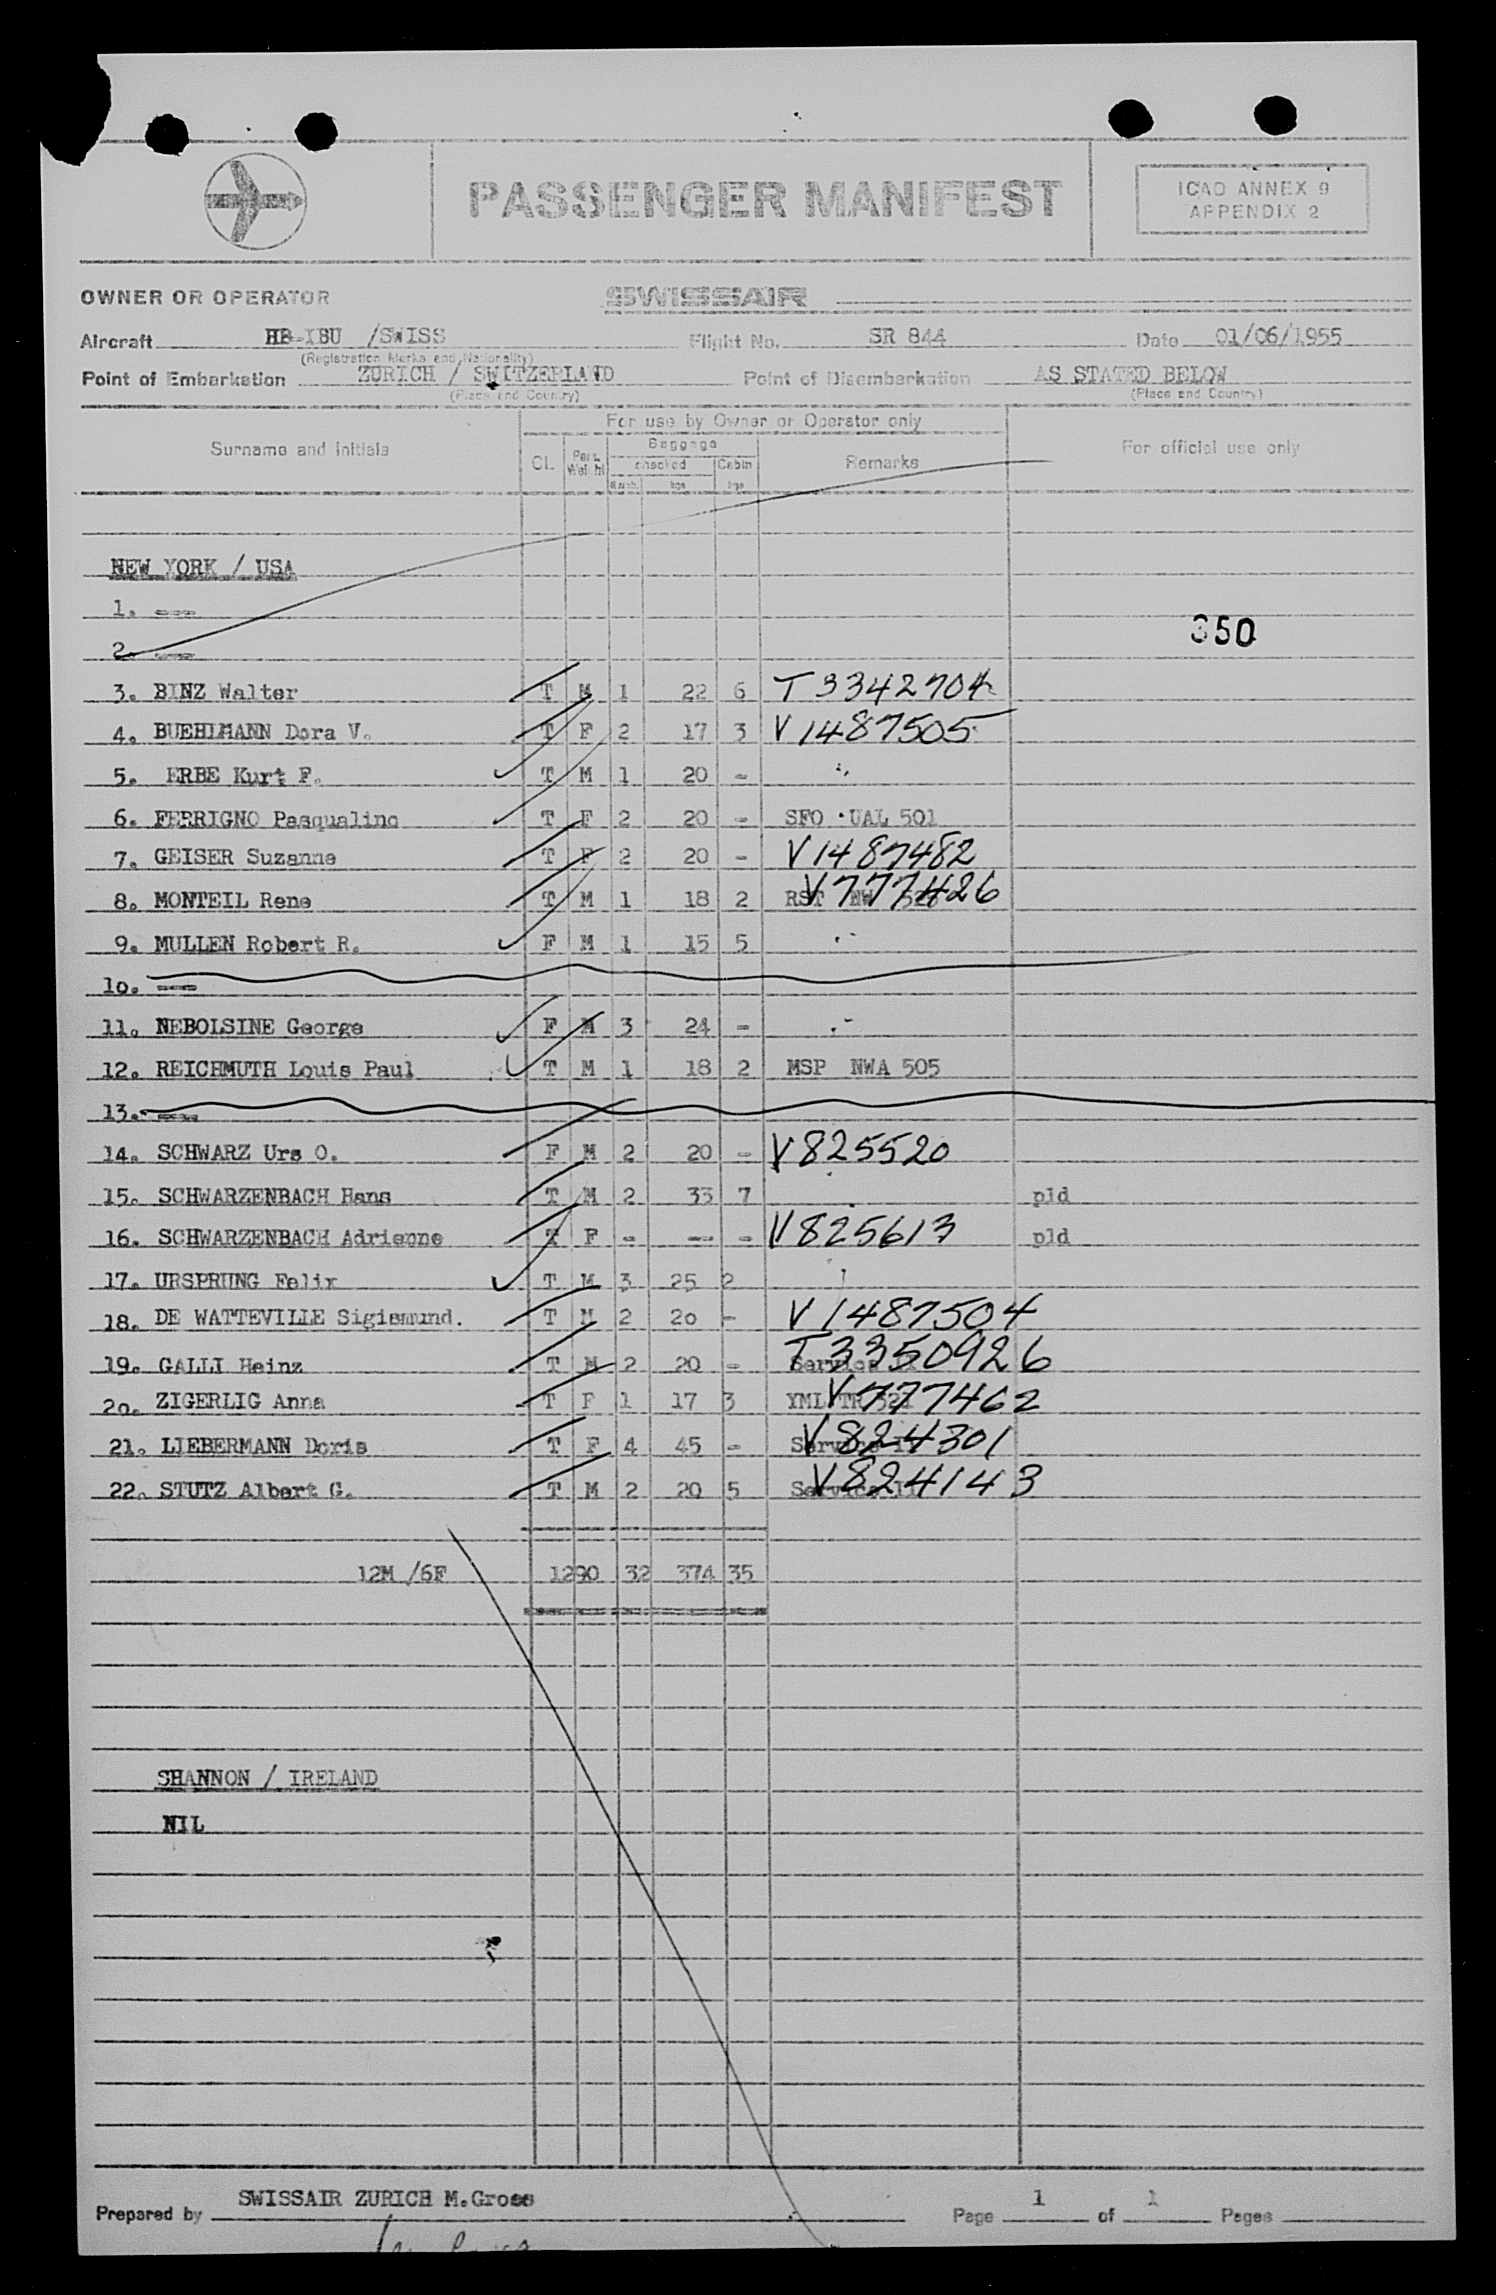 PASSENGER MANIFEST
ICAO ANNEX 9
APPENDIX 2
OWNER OR OPERATOR SWISSAIR
Aircraft HB-IBU /SWISS Flight No. SR 844 Date 01/06/1955
(Registration Marks and Nationality)
Point of Embarkation ZURICH / SWITZERLAND Point of Disembarkation AS STATED BELOW
(Place and Country) (Place and Country)
For use by Owner or Operator only
Surname and initials Cl. Pers. Weight Baggage checked Cabin Remarks For official use only
Numb. kgs kgs
NEW YORK / USA
1. ---
350
2. ---
3. BINZ Walter T M 1 22 6 T3342704
4. BUEHLMANN Dora V. T F 2 17 3 V1487505
5. ERBE Kurt F. T M 1 20 -
6. FERRIGNO Pasqualino T F 2 20 - SFO UAL 501
7. GEISER Suzanne T F 2 20 - V1487482
8. MONTEIL Rene T M 1 18 2 RST NW V777426
9. MULLEN Robert R. F M 1 15 5
10. ---
11. NEBOLSINE George F M 3 24 -
12. REICHMUTH Louis Paul T M 1 18 2 MSP NWA 505
13. ---
14. SCHWARZ Urs O. F M 2 20 - V825520
15. SCHWARZENBACH Hans T M 2 33 7 pld
16. SCHWARZENBACH Adrienne T F - -- - V825613 pld
17. URSPRUNG Felix T M 3 25 2
18. DE WATTEVILLE Sigismund. T M 2 20 - V1487504
19. GALLI Heinz T M 2 20 - Service T3350926
20. ZIGERLIG Anna T F 1 17 3 YML TR 321 V777462
21. LIEBERMANN Doris T F 4 45 - Service V824301
22. STUTZ Albert G. T M 2 20 5 Service V824143
12M /6F 1290 32 374 35
SHANNON / IRELAND
NIL
Prepared by SWISSAIR ZURICH M.Gross Page 1 of 1 Pages